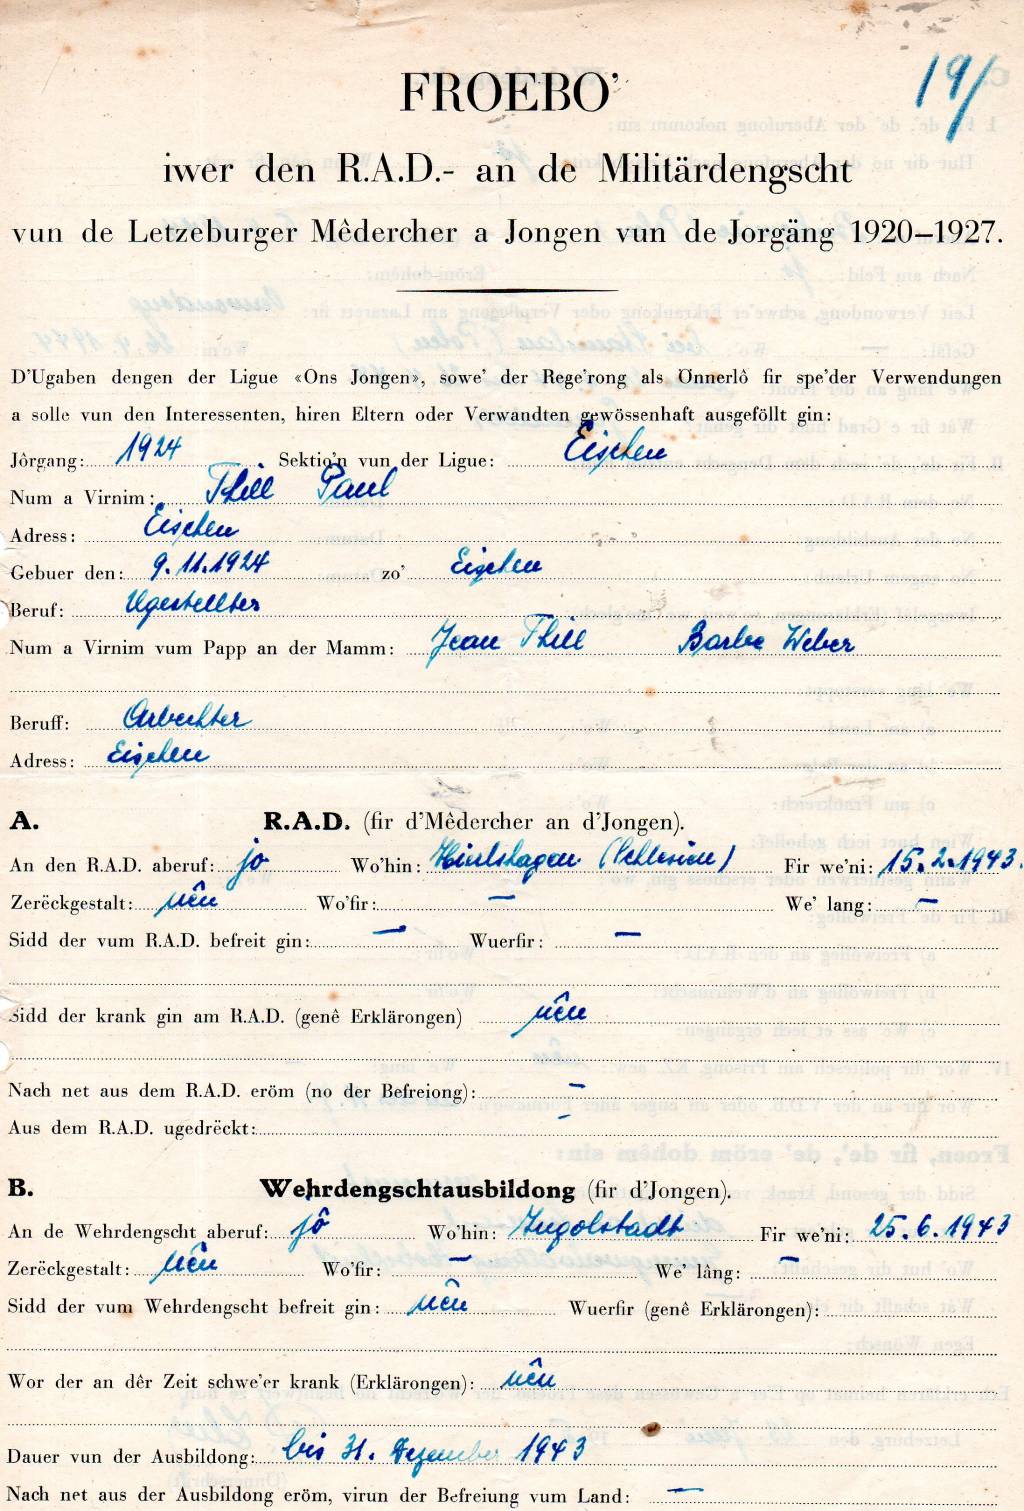 19/
FROEBO'
iwer den R.A.D.- an de Militärdengscht
vun de Letzeburger Mêdercher a Jongen vun de Jorgäng 1920–1927.
D'Ugaben dengen der Ligue «Ons Jongen», sowe' der Rege'rong als Önnerlô fir spe'der Verwendungen
a solle vun den Interessenten, hiren Eltern oder Verwandten gewössenhaft ausgeföllt gin:
Jôrgang: 1924 Sektio'n vun der Ligue: Eischen
Num a Virnim: Thill Paul
Adress: Eischen
Gebuer den: 9.11.1924 zo' Eischen
Beruf: Ugestellter
Num a Virnim vum Papp an der Mamm: Jean Thill Barbe Weber
Beruff: Arbechter
Adress: Eischen
A. R.A.D. (fir d'Mêdercher an d'Jongen).
An den R.A.D. aberuf: jo Wo'hin: (Schlesien) Fir we'ni: 15.2.1943.
Zerëckgestalt: nên Wo'fir: — We' lang: —
Sidd der vum R.A.D. befreit gin: — Wuerfir: —
Sidd der krank gin am R.A.D. (genê Erklärongen) nên
Nach net aus dem R.A.D. eröm (no der Befreiong): —
Aus dem R.A.D. ugedrëckt: —
B. Wehrdengschtausbildong (fir d'Jongen).
An de Wehrdengscht aberuf: jô Wo'hin: Ingolstadt Fir we'ni: 25.6.1943
Zerëckgestalt: nên Wo'fir: — We' lâng: —
Sidd der vum Wehrdengscht befreit gin: nên Wuerfir (genê Erklärongen):
Wor der an dêr Zeit schwe'er krank (Erklärongen): nên
Dauer vun der Ausbildong: bis 31. Dezember 1943
Nach net aus der Ausbildong eröm, virun der Befreiung vum Land: —